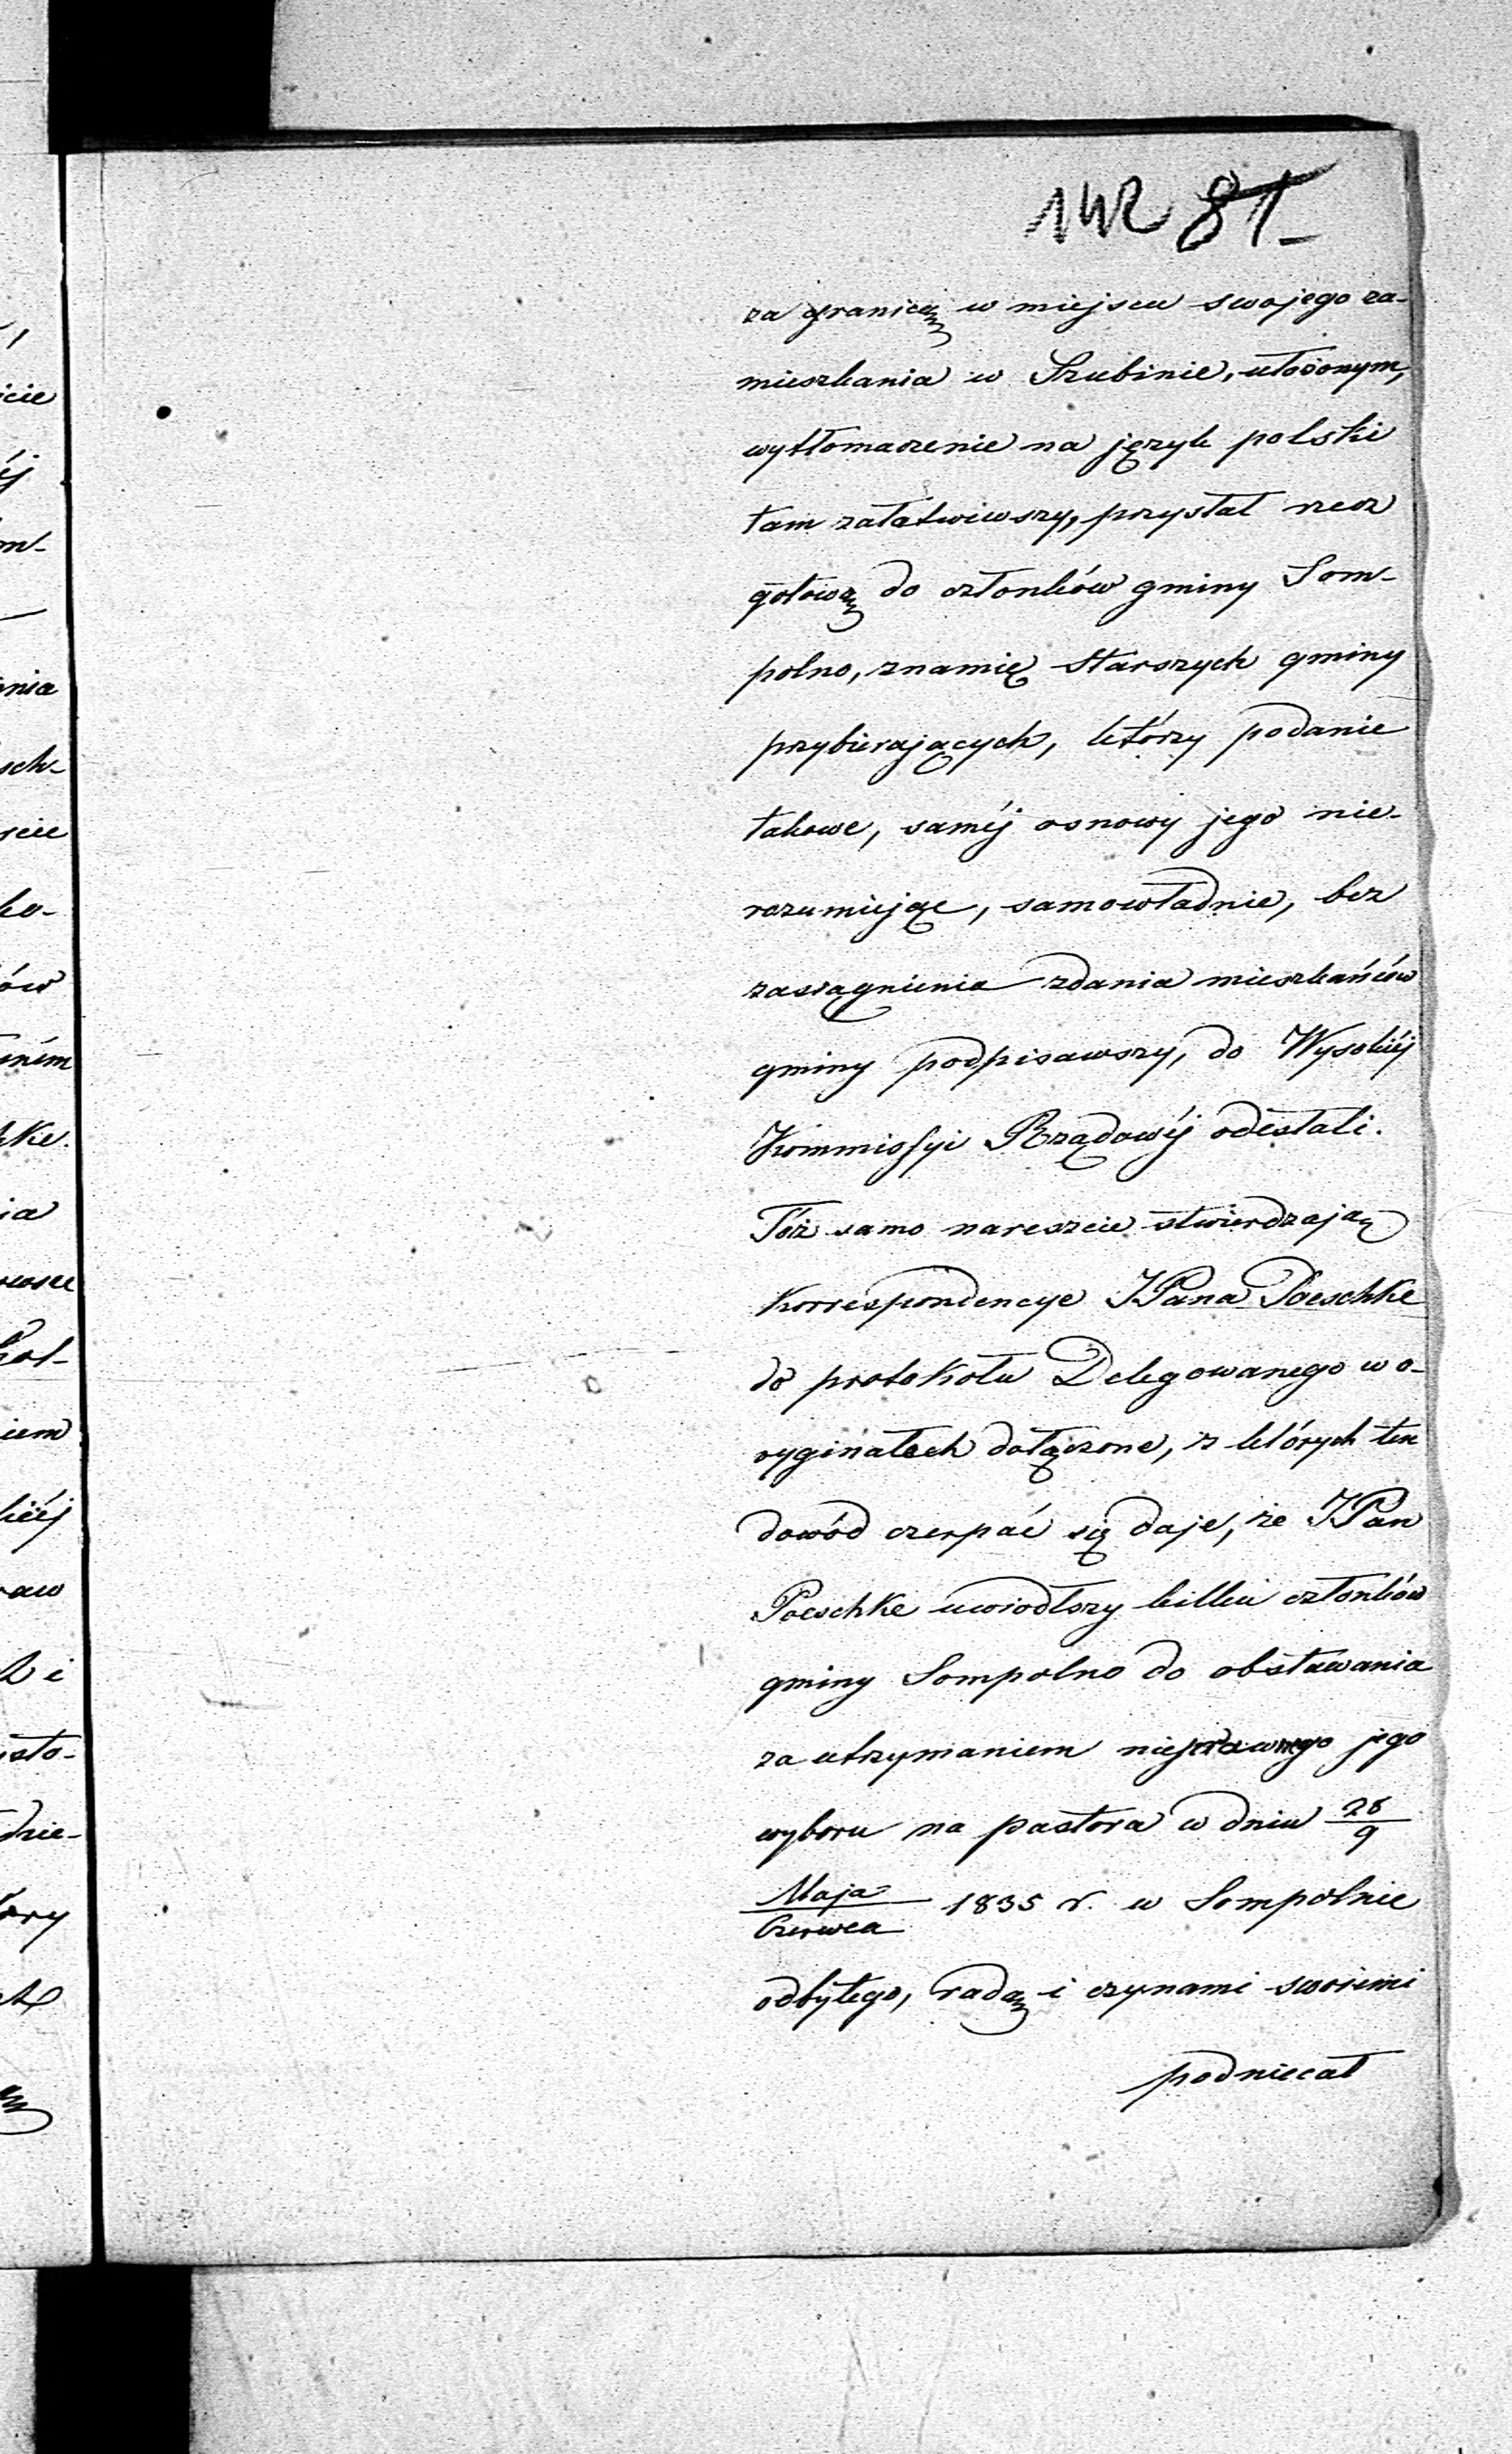 142 81
za granicą w miejscu swojego za-
mieszkania w Szubinie, ułożonym,
wytłomaczenie na język polski
tam załatwiwszy, przysłał rzecz
gotową do członków gminy Som-
polno, znamię Starszych gminy
przybierających, którzy podanie
takowe, saméj osnowy jego nie-
rozumiejąc, samowładnie, bez
zasiągnienia zdania mieszkańców
gminy podpisawszy, do Wysokiéj
Kommissyi Rządowéj odesłali.
Tóż samo nareszcie stwierdzają
Korrespondencye JPana Poeschke
do protokołu Delegowanego w o-
ryginałach dołączone, z których ten
dowód czerpać się daje, że JPan
Poeschke uwiodłszy kilku członków
gminy Sompolno do obstawania
za utrzymaniem nieprawnego jego
wyboru na pastora w dniu 28/9
Maja/Czerwca 1835 r. w Sompolnie
odbytego, radą i czynami swoiemi
podniecał
icie
éj
om-
ania
sch-
rcie
ko-
ów
ke.
ia
iem
kiéj
raw
i
sto-
dzie-
óry